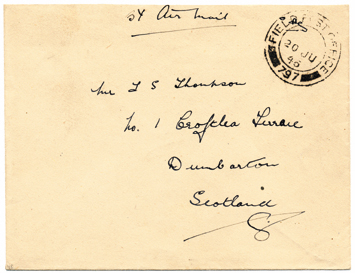 By Air Mail
FIELD POST OFFICE
20 JU
46
797
Mr T S Thompson
No. 1 Crosslea Terrace
Dumbarton
Scotland